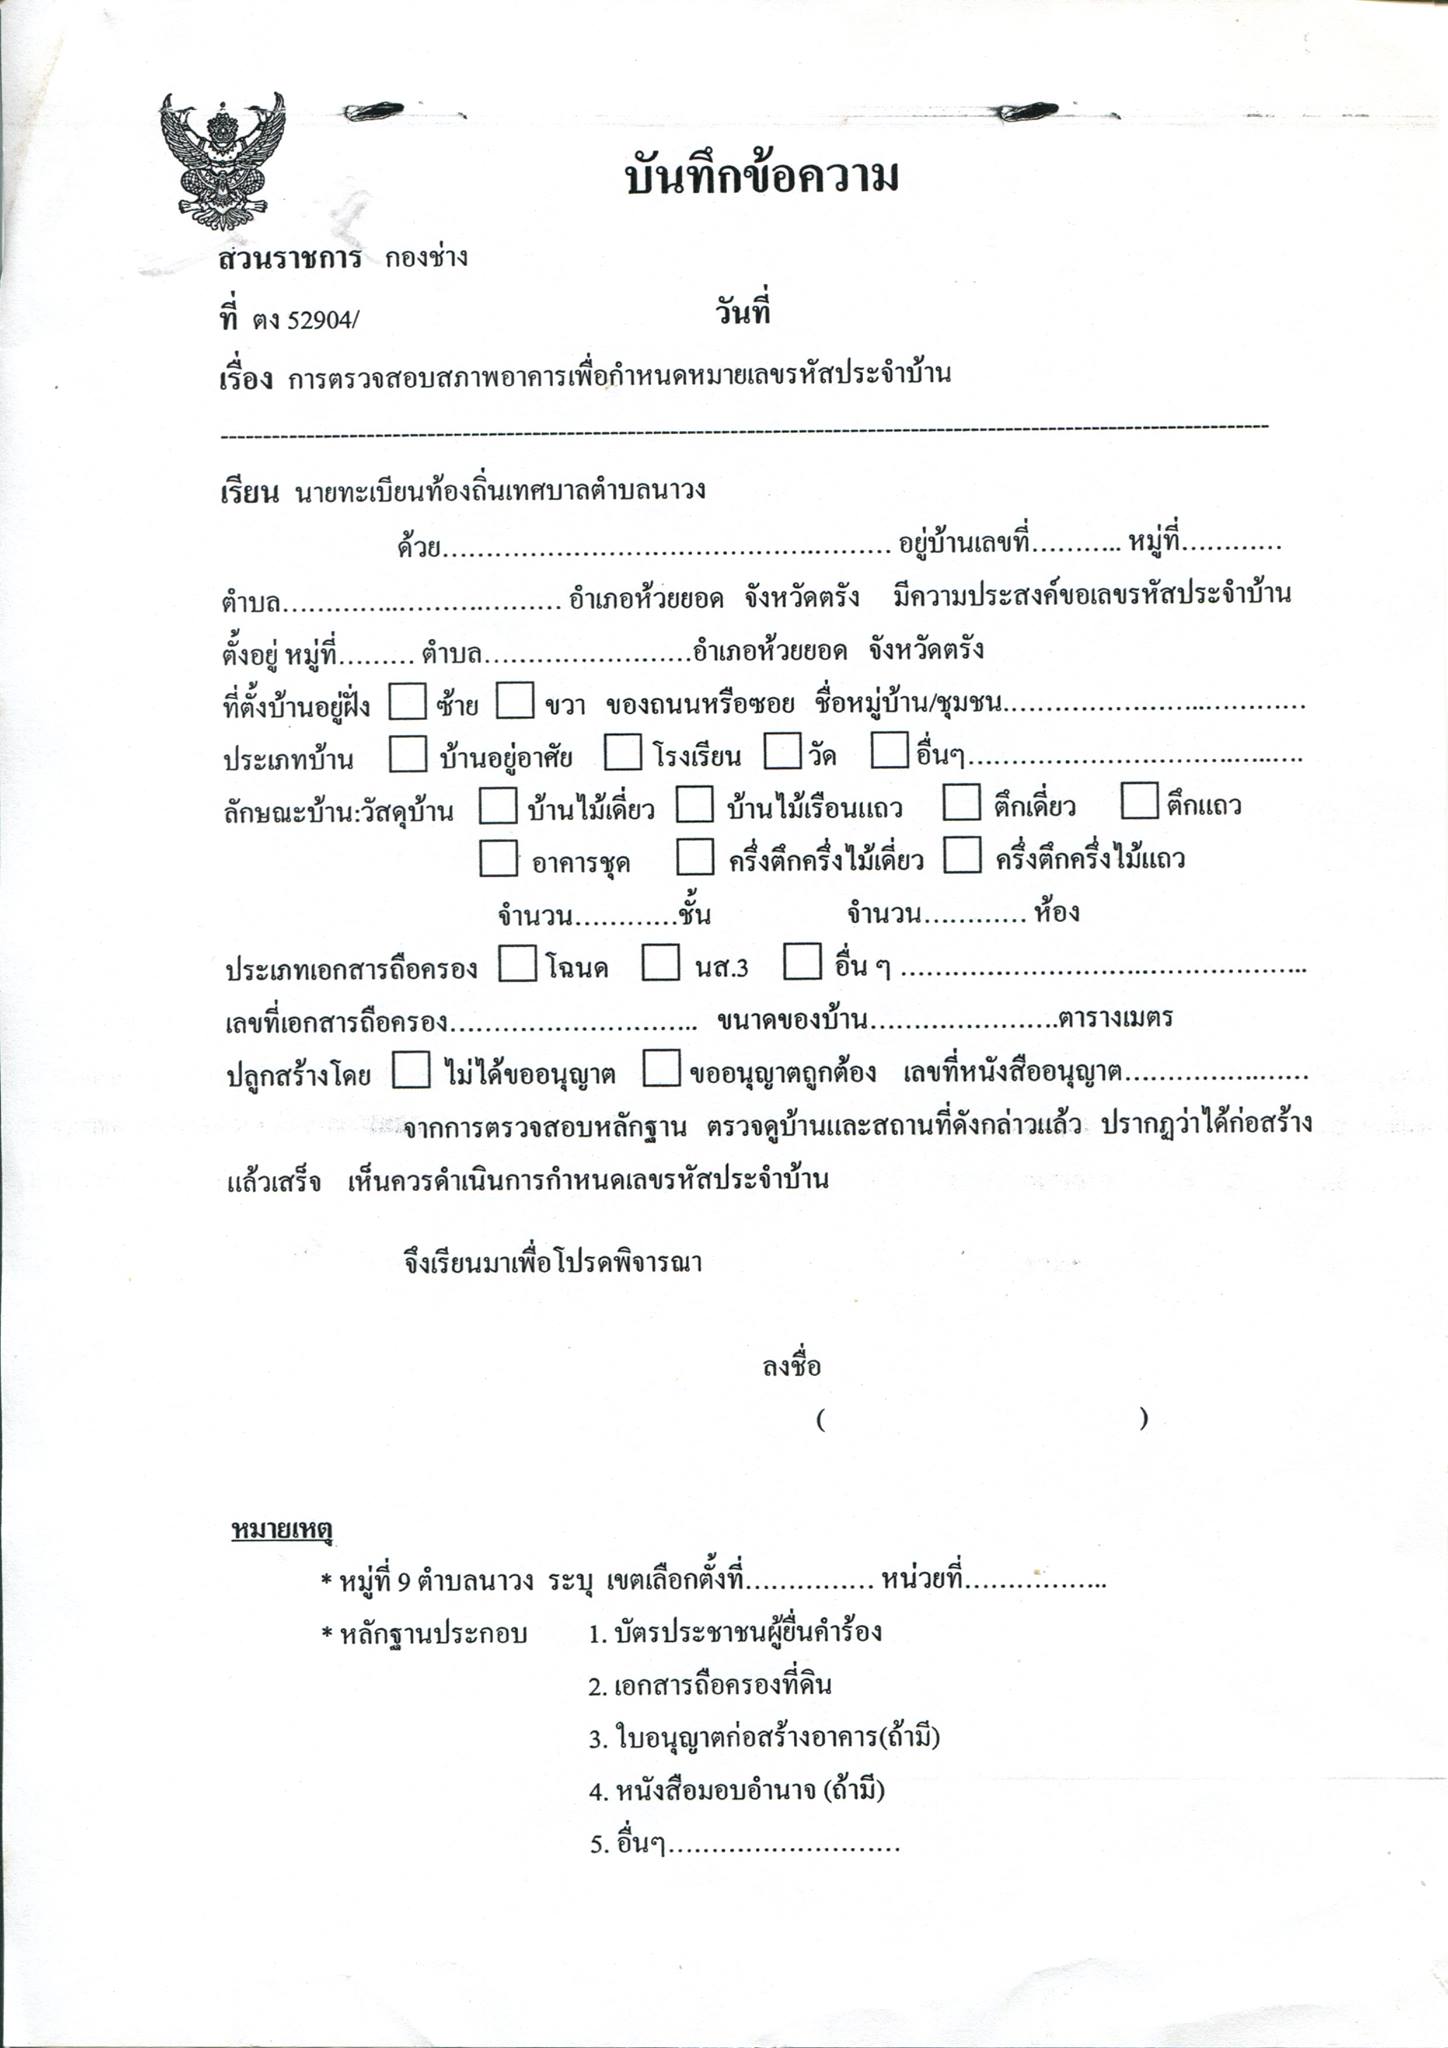 บันทึกข้อความ
ส่วนราชการ กองช่าง
ที่ ตง 52904/ วันที่
เรื่อง การตรวจสอบสภาพอาคารเพื่อกำหนดหมายเลขรหัสประจำบ้าน
--------------------------------------------------------------------------------------------------------------------------
เรียน นายทะเบียนท้องถิ่นเทศบาลตำบลนาวง
ด้วย.................................................... อยู่บ้านเลขที่........... หมู่ที่............
ตำบล................................ อำเภอห้วยยอด จังหวัดตรัง มีความประสงค์ขอเลขรหัสประจำบ้าน
ตั้งอยู่ หมู่ที่......... ตำบล........................อำเภอห้วยยอด จังหวัดตรัง
ที่ตั้งบ้านอยู่ฝั่ง ☐ ซ้าย ☐ ขวา ของถนนหรือซอย ชื่อหมู่บ้าน/ชุมชน...................................
ประเภทบ้าน ☐ บ้านอยู่อาศัย ☐ โรงเรียน ☐ วัด ☐ อื่นๆ.......................................
ลักษณะบ้าน:วัสดุบ้าน ☐ บ้านไม้เดี่ยว ☐ บ้านไม้เรือนแถว ☐ ตึกเดี่ยว ☐ ตึกแถว
☐ อาคารชุด ☐ ครึ่งตึกครึ่งไม้เดี่ยว ☐ ครึ่งตึกครึ่งไม้แถว
จำนวน............ชั้น จำนวน............ ห้อง
ประเภทเอกสารถือครอง ☐ โฉนด ☐ นส.3 ☐ อื่น ๆ ...............................................
เลขที่เอกสารถือครอง............................. ขนาดของบ้าน......................ตารางเมตร
ปลูกสร้างโดย ☐ ไม่ได้ขออนุญาต ☐ ขออนุญาตถูกต้อง เลขที่หนังสืออนุญาต.....................
จากการตรวจสอบหลักฐาน ตรวจดูบ้านและสถานที่ดังกล่าวแล้ว ปรากฏว่าได้ก่อสร้าง
แล้วเสร็จ เห็นควรดำเนินการกำหนดเลขรหัสประจำบ้าน
จึงเรียนมาเพื่อโปรดพิจารณา
ลงชื่อ
( )
หมายเหตุ
* หมู่ที่ 9 ตำบลนาวง ระบุ เขตเลือกตั้งที่............... หน่วยที่.................
* หลักฐานประกอบ 1. บัตรประชาชนผู้ยื่นคำร้อง
2. เอกสารถือครองที่ดิน
3. ใบอนุญาตก่อสร้างอาคาร(ถ้ามี)
4. หนังสือมอบอำนาจ (ถ้ามี)
5. อื่นๆ...........................